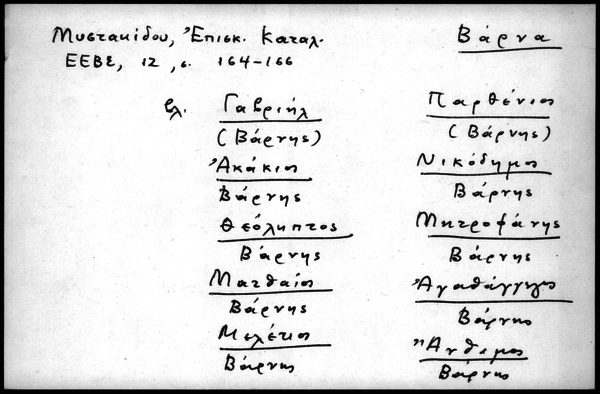 Μυστακίδου, Ἐπισκ. Καταλ.
ΕΕΒΣ, 12, σ. 164-166
Βάρνα
βλ.
Γαβριήλ
(Βάρνης)
Ἀκάκιος
Βάρνης
Θεόληπτος
Βάρνης
Ματθαῖος
Βάρνης
Μελέτιος
Βάρνης
Παρθένιος
(Βάρνης)
Νικόδημος
Βάρνης
Μητροφάνης
Βάρνης
Ἀγαθάγγελος
Βάρνης
Ἄνθιμος
Βάρνης